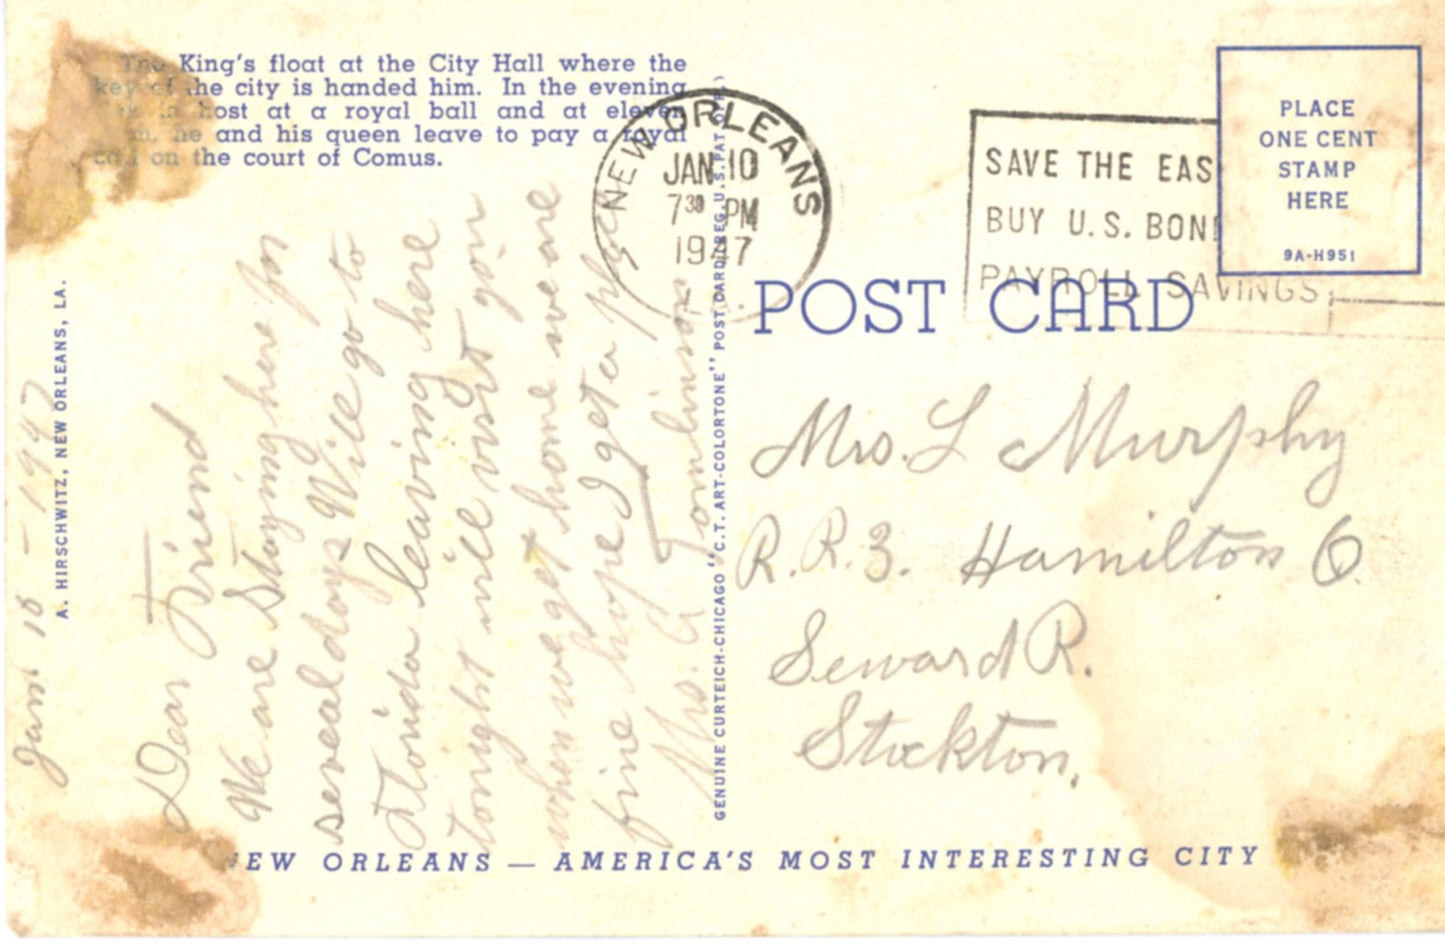 The King's float at the City Hall where the
key of the city is handed him. In the evening
Rex is host at a royal ball and at eleven
he and his queen leave to pay a royal
call on the court of Comus.
NEW ORLEANS
JAN 10
7 30 PM
1947
SAVE THE EAS
BUY U.S. BON
PAYROLL SAVINGS
PLACE
ONE CENT
STAMP
HERE
9A-H951
POST CARD
Jan 10 - 1947
A. HIRSCHWITZ, NEW ORLEANS, LA.
Dear Friend
We are Staying here for
several days Will go to
Florida leaving here
tonight will visit
when we get home we are
fine hope I get a place
Mrs. A Tomlinson
GENUINE CURTEICH-CHICAGO "C.T. ART-COLORTONE" POST CARD (REG. U.S. PAT. OFF.)
Mrs. L Murphy
R.R.3. Hamilton O.
Seward R.
Stockton.
NEW ORLEANS — AMERICA'S MOST INTERESTING CITY